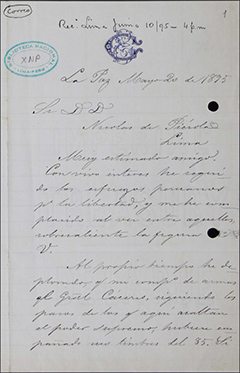 Correo
Reć Lima Junio 10/95 - 4 pm
1
BIBLIOTECA NACIONAL
XNP
La Paz Mayo 20 de 1895
Sr D. D.
Nicolas de Piérola
Lima
Muy estimado amigo.
Con vivo interes he segui
do los esfuerzos peruanos
por la libertad, y me he com
placido al ver entre aquellos,
sobresaliente la figura de
V.
Al propio tiempo he de
plorado, q' mi compo de armas
el Gral Cáceres, siguiendo los
pasos de los q' aqui asaltan
el poder supremo, hubiera em
pañado sus timbres del 85. El